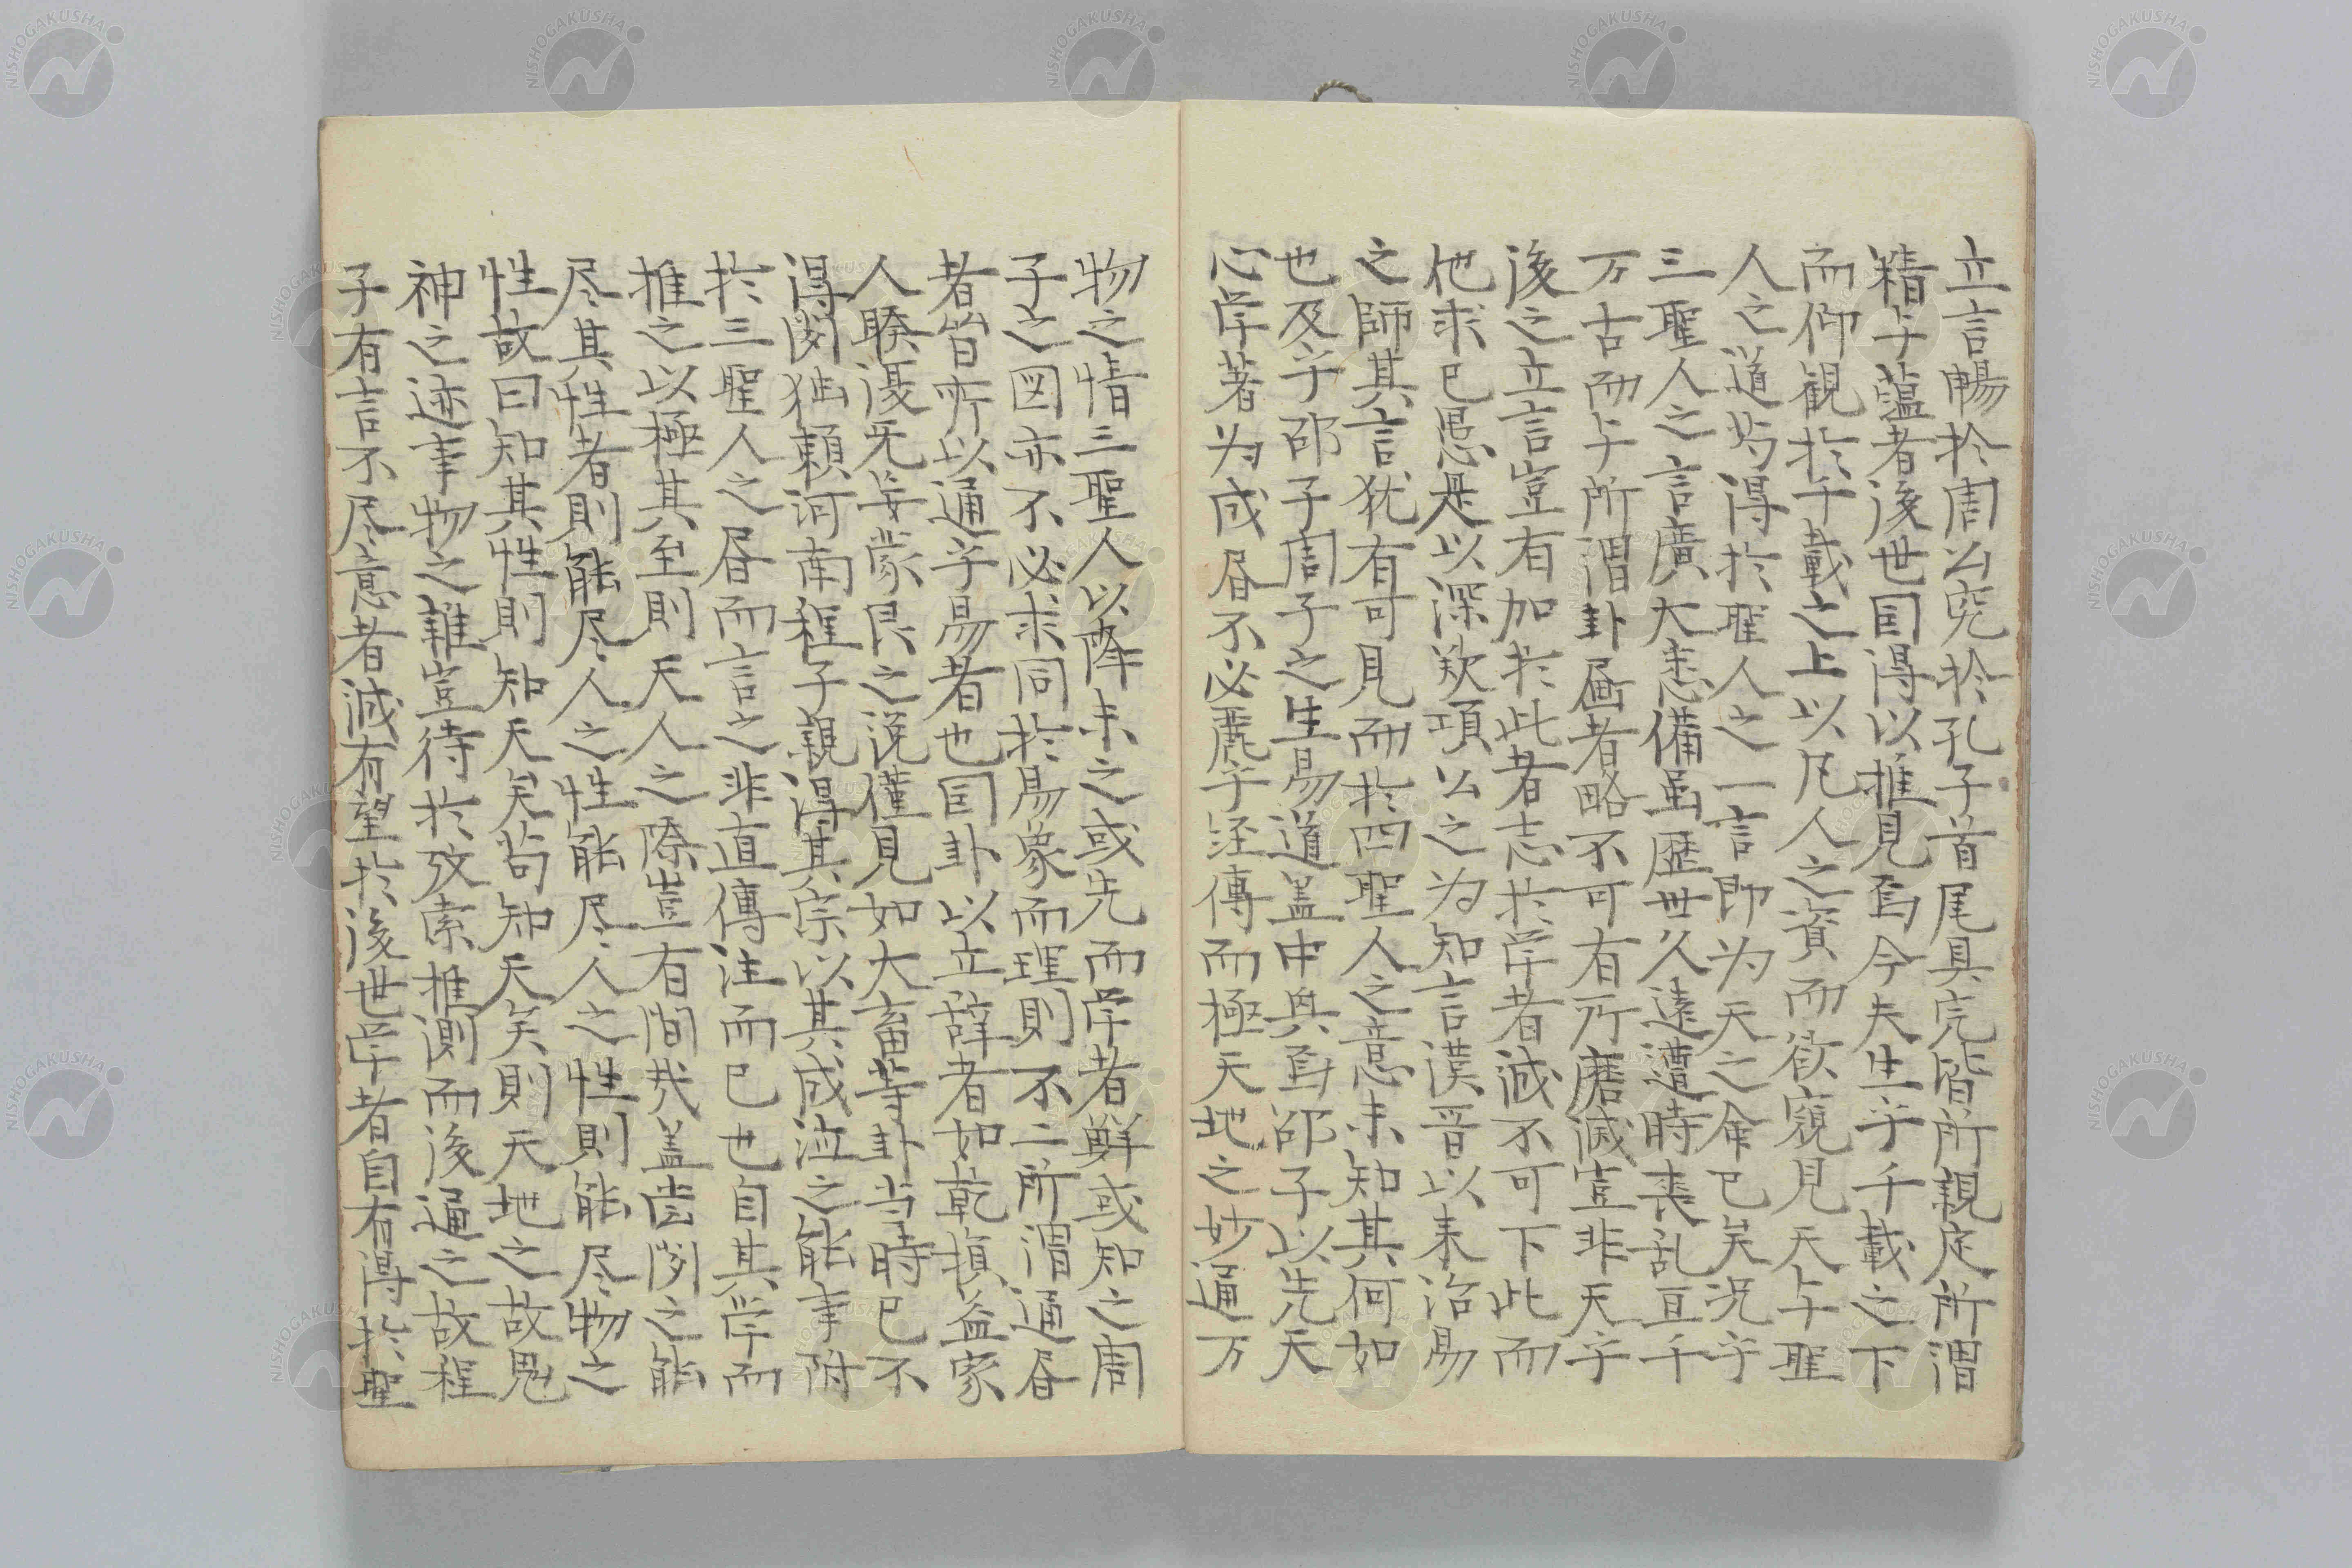 立言暢於周公究於孔子首尾具完皆所親定所謂
精与蘊者後世囯得以推見焉今夫生乎千載之下
而仰観於千載之上以凡人之資而欲窺見天与聖
人之道苟得於聖人之一言即为天之命已矣況乎
三聖人之言廣大悉備虽歴世久遠遭時喪乱亘千
万古而与所謂卦画者略不可有所磨滅豈非天乎
後之立言豈有加於此者志於学者誠不可下此而
他求已愚是以深歎項公之为知言漢晋以来治易
之師其言犹有可見而於四聖人之意未知其何如
也及乎邵子周子之生易道盖中興焉邵子以先天
心学著为成昼不必麗乎経傳而極天地之妙通万
物之情三聖人以降未之或先而学者鮮或知之周
子之図亦不必求同於易象而理則不二所謂通昼
者皆所以通乎易者也囯卦以立辞者如乾損益家
人睽復无妄蒙艮之説僅見如大畜等卦当時已不
得閲独頼河南程子親得其宗以其成泣之能事附
於三聖人之昼而言之非直傳注而已也自其学而
推之以極其至則天人之際豈有間哉盖尝閲之能
尽其性者則能尽人之性能尽人之性則能尽物之
性故曰知其性則知天矣苟知天矣則天地之故鬼
神之迹事物之難豈待於攷索推測而後通之故程
子有言不尽意者誠有望於後世学者自有得於聖